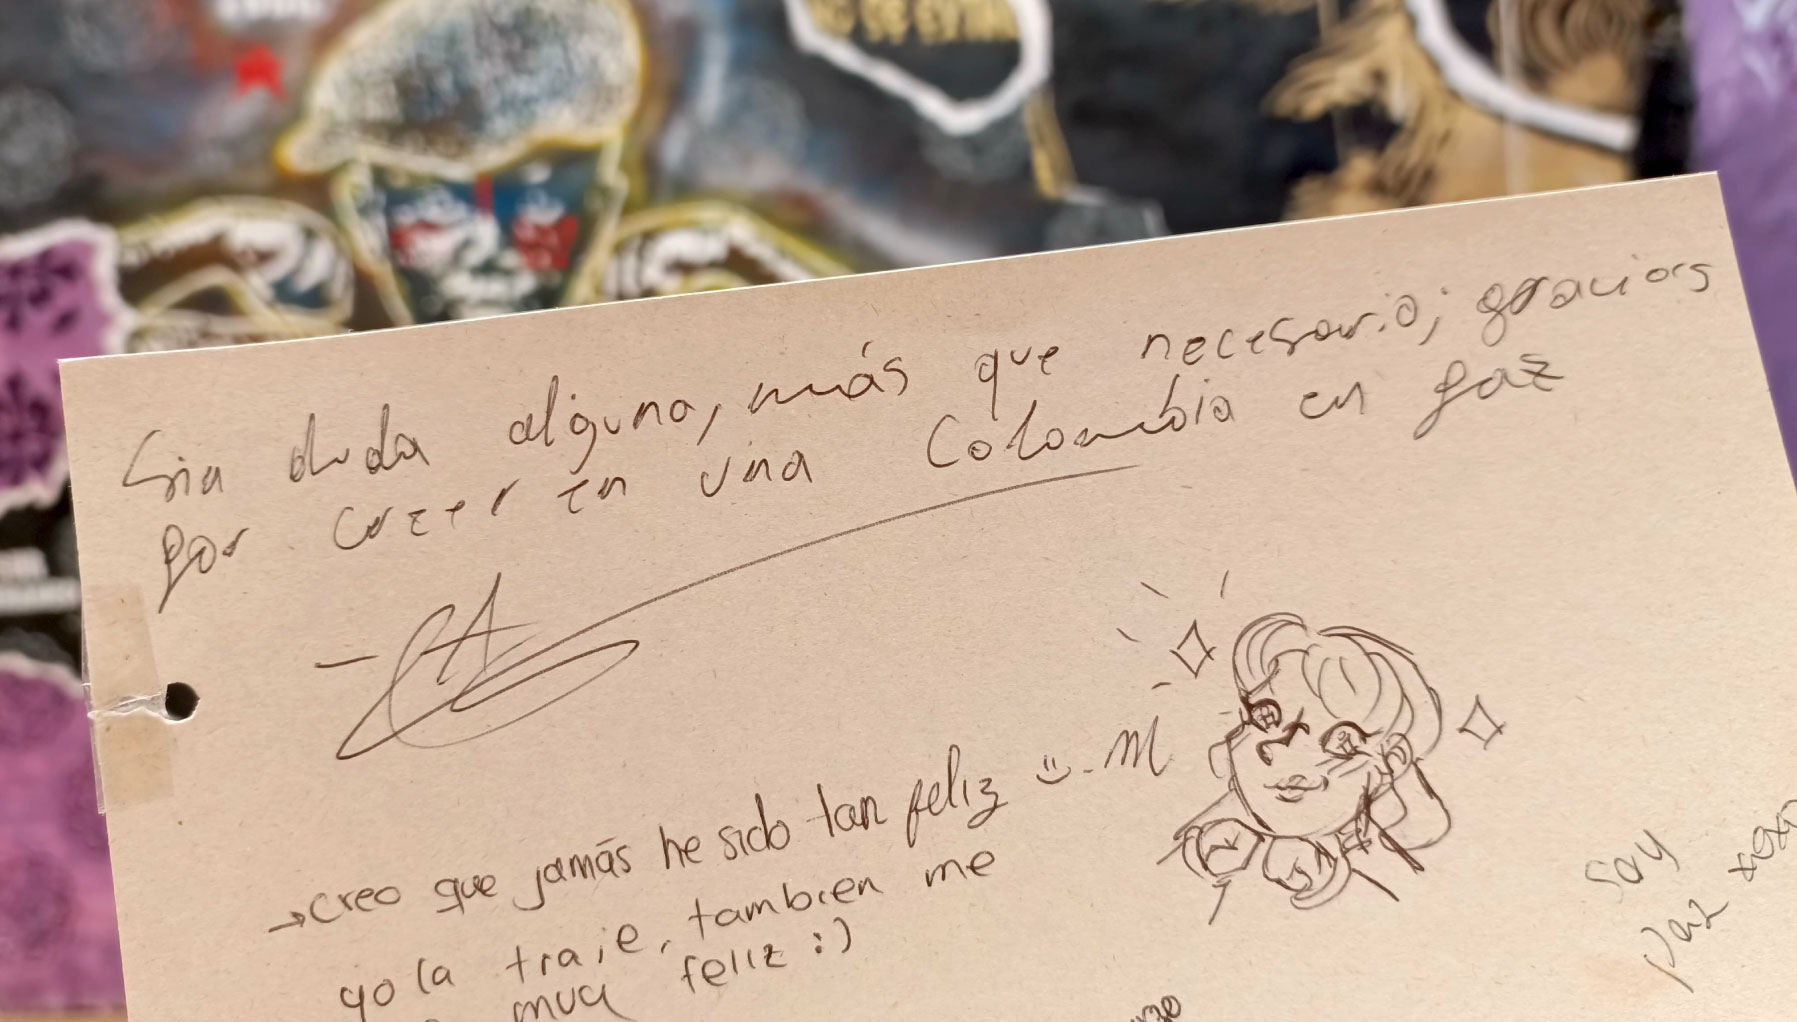 Sin duda alguna, más que necesario; gracias
por creer en una Colombia en paz
→creo que jamás he sido tan feliz :). M
yo la traje, tambien me
muy feliz :)
Soy
Paz xoxo